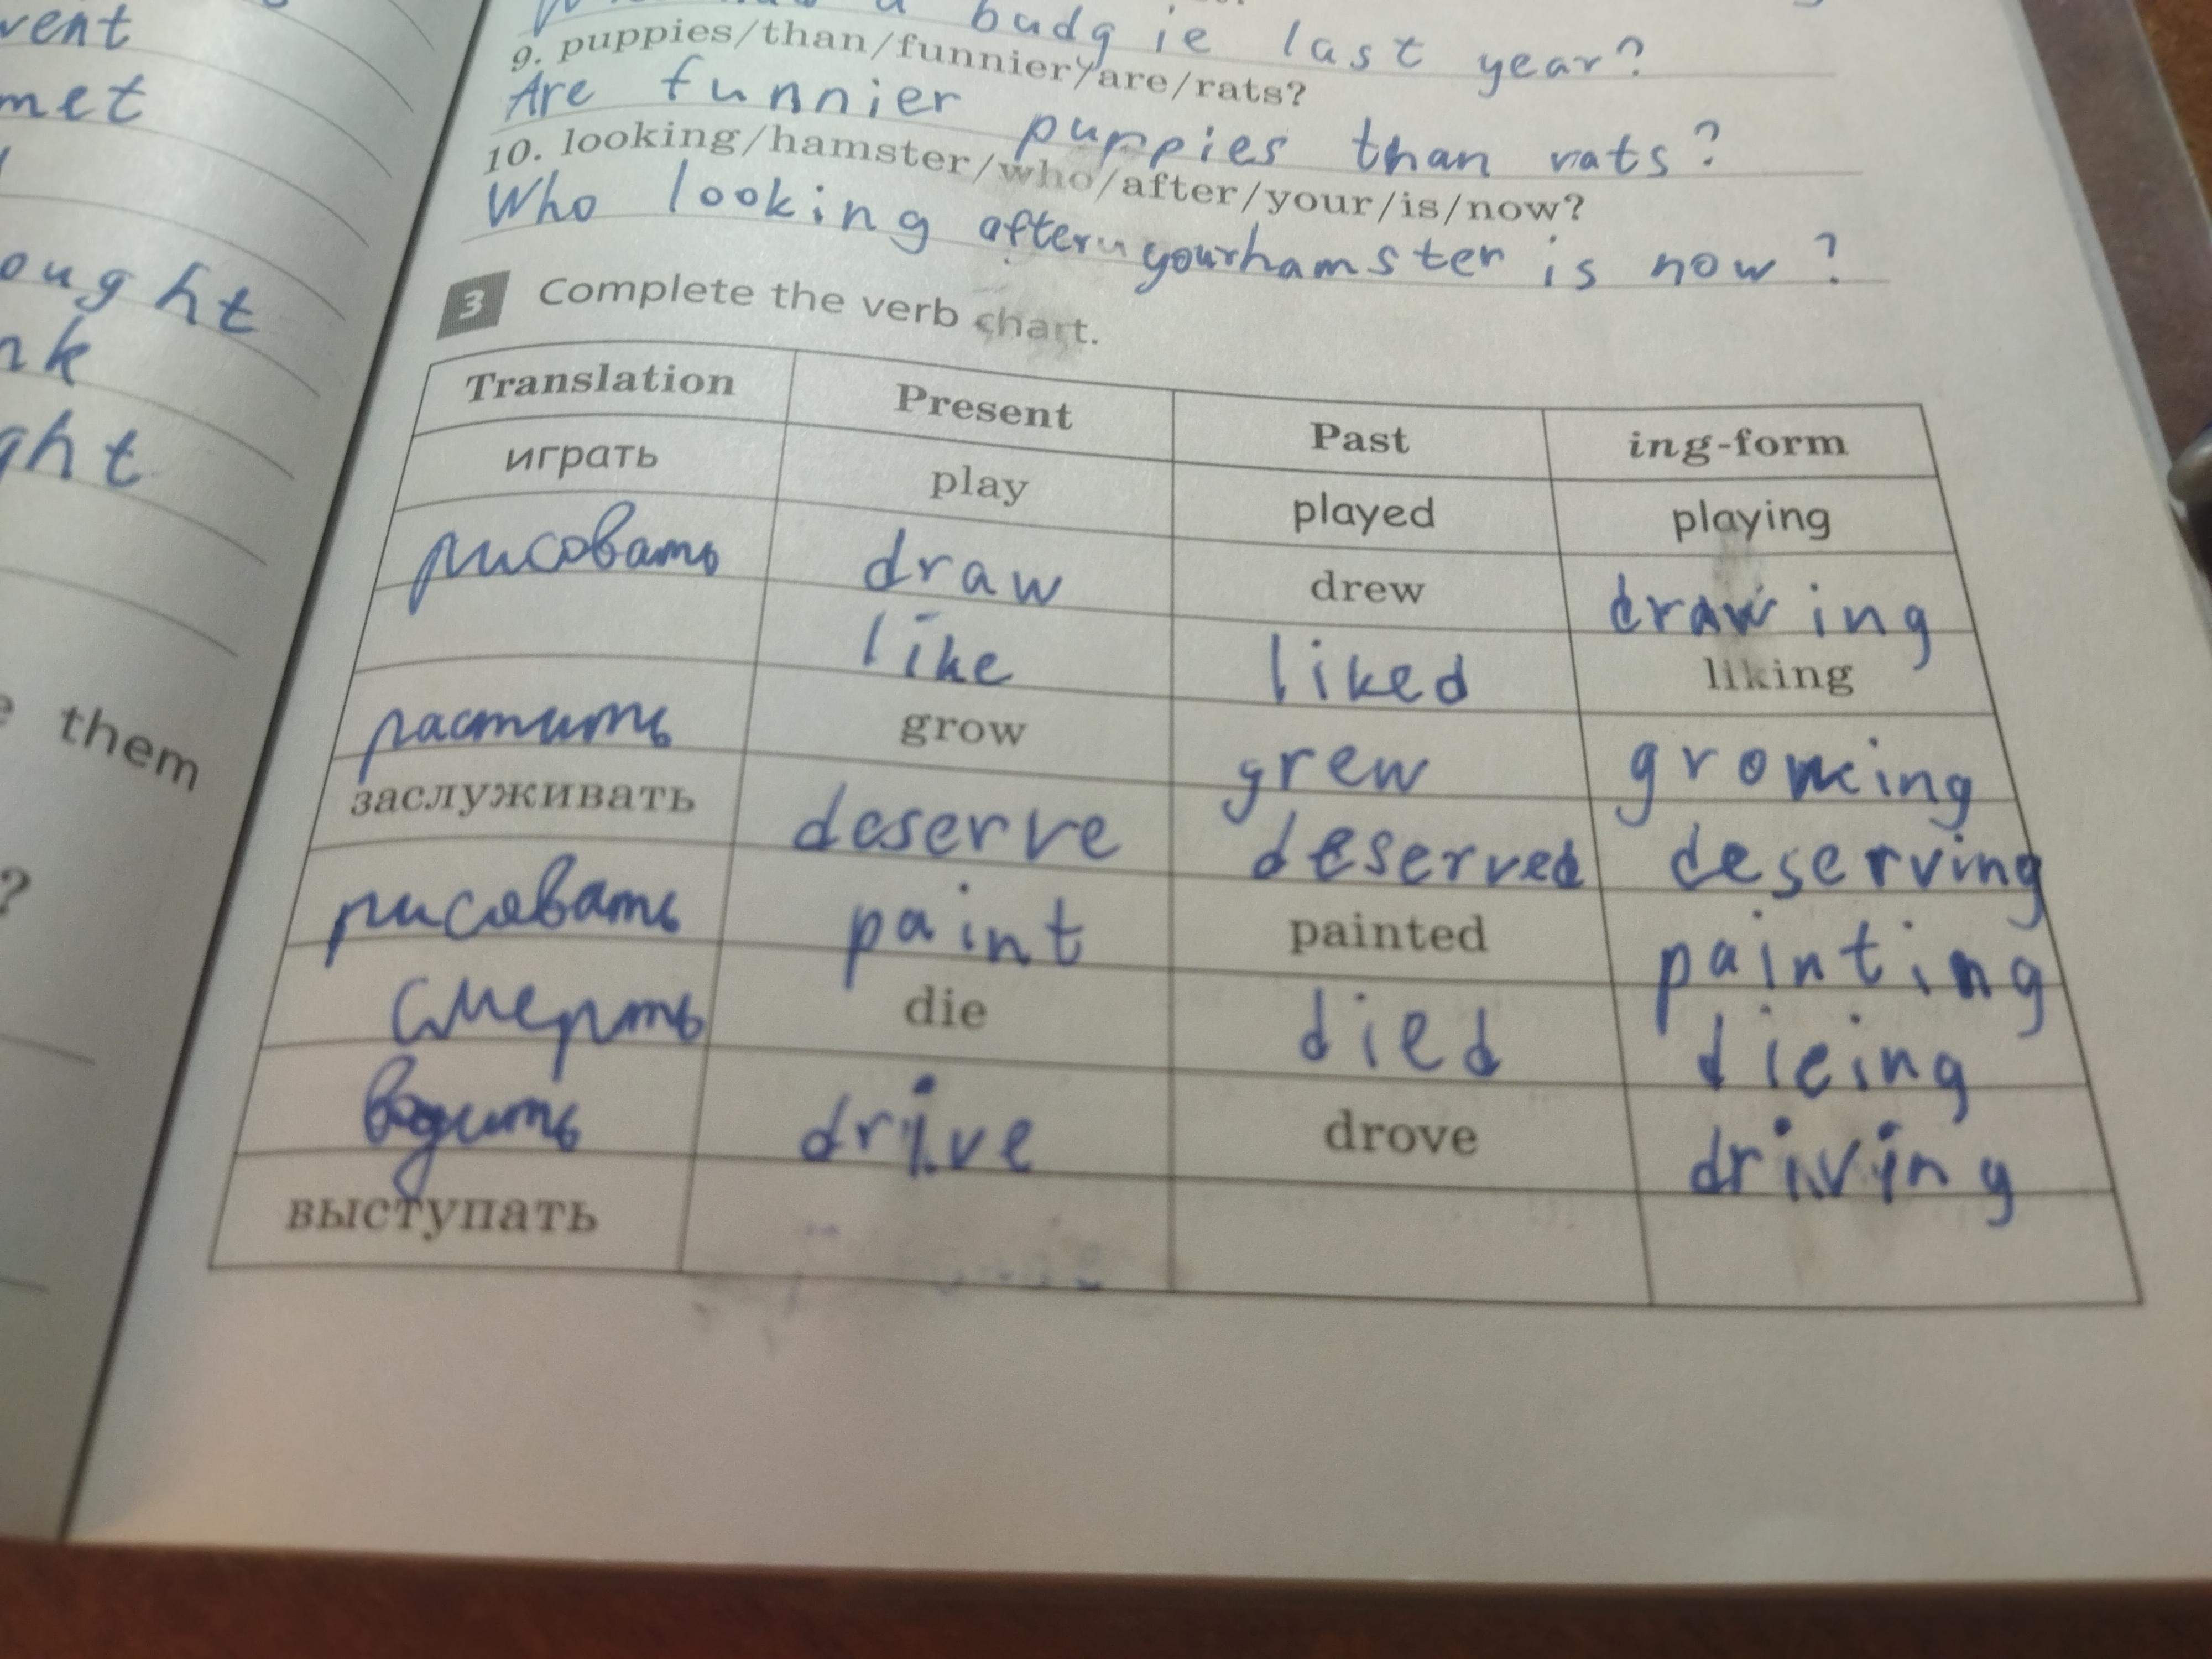 vent
met
ought
nk
ght
them
?
a budgie last year?
9. puppies/than/funnier/are/rats?
Are funnier puppies than rats?
10. looking/hamster/who/after/your/is/now?
Who looking after your hamster is now?
3 Complete the verb chart.
Translation Present Past ing-form
играть play played playing
рисовать draw drew drawing
like liked liking
растить grow grew growing
заслуживать deserve deserved deserving
рисовать paint painted painting
смерть die died dieing
водить drive drove driving
выступать